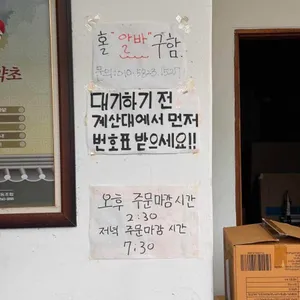 홀 "알바" 구함
대기하기 전
계산대에서 먼저
번호표 받으세요!!
오후 주문마감 시간
2:30
저녁 주문마감 시간
7:30
약초